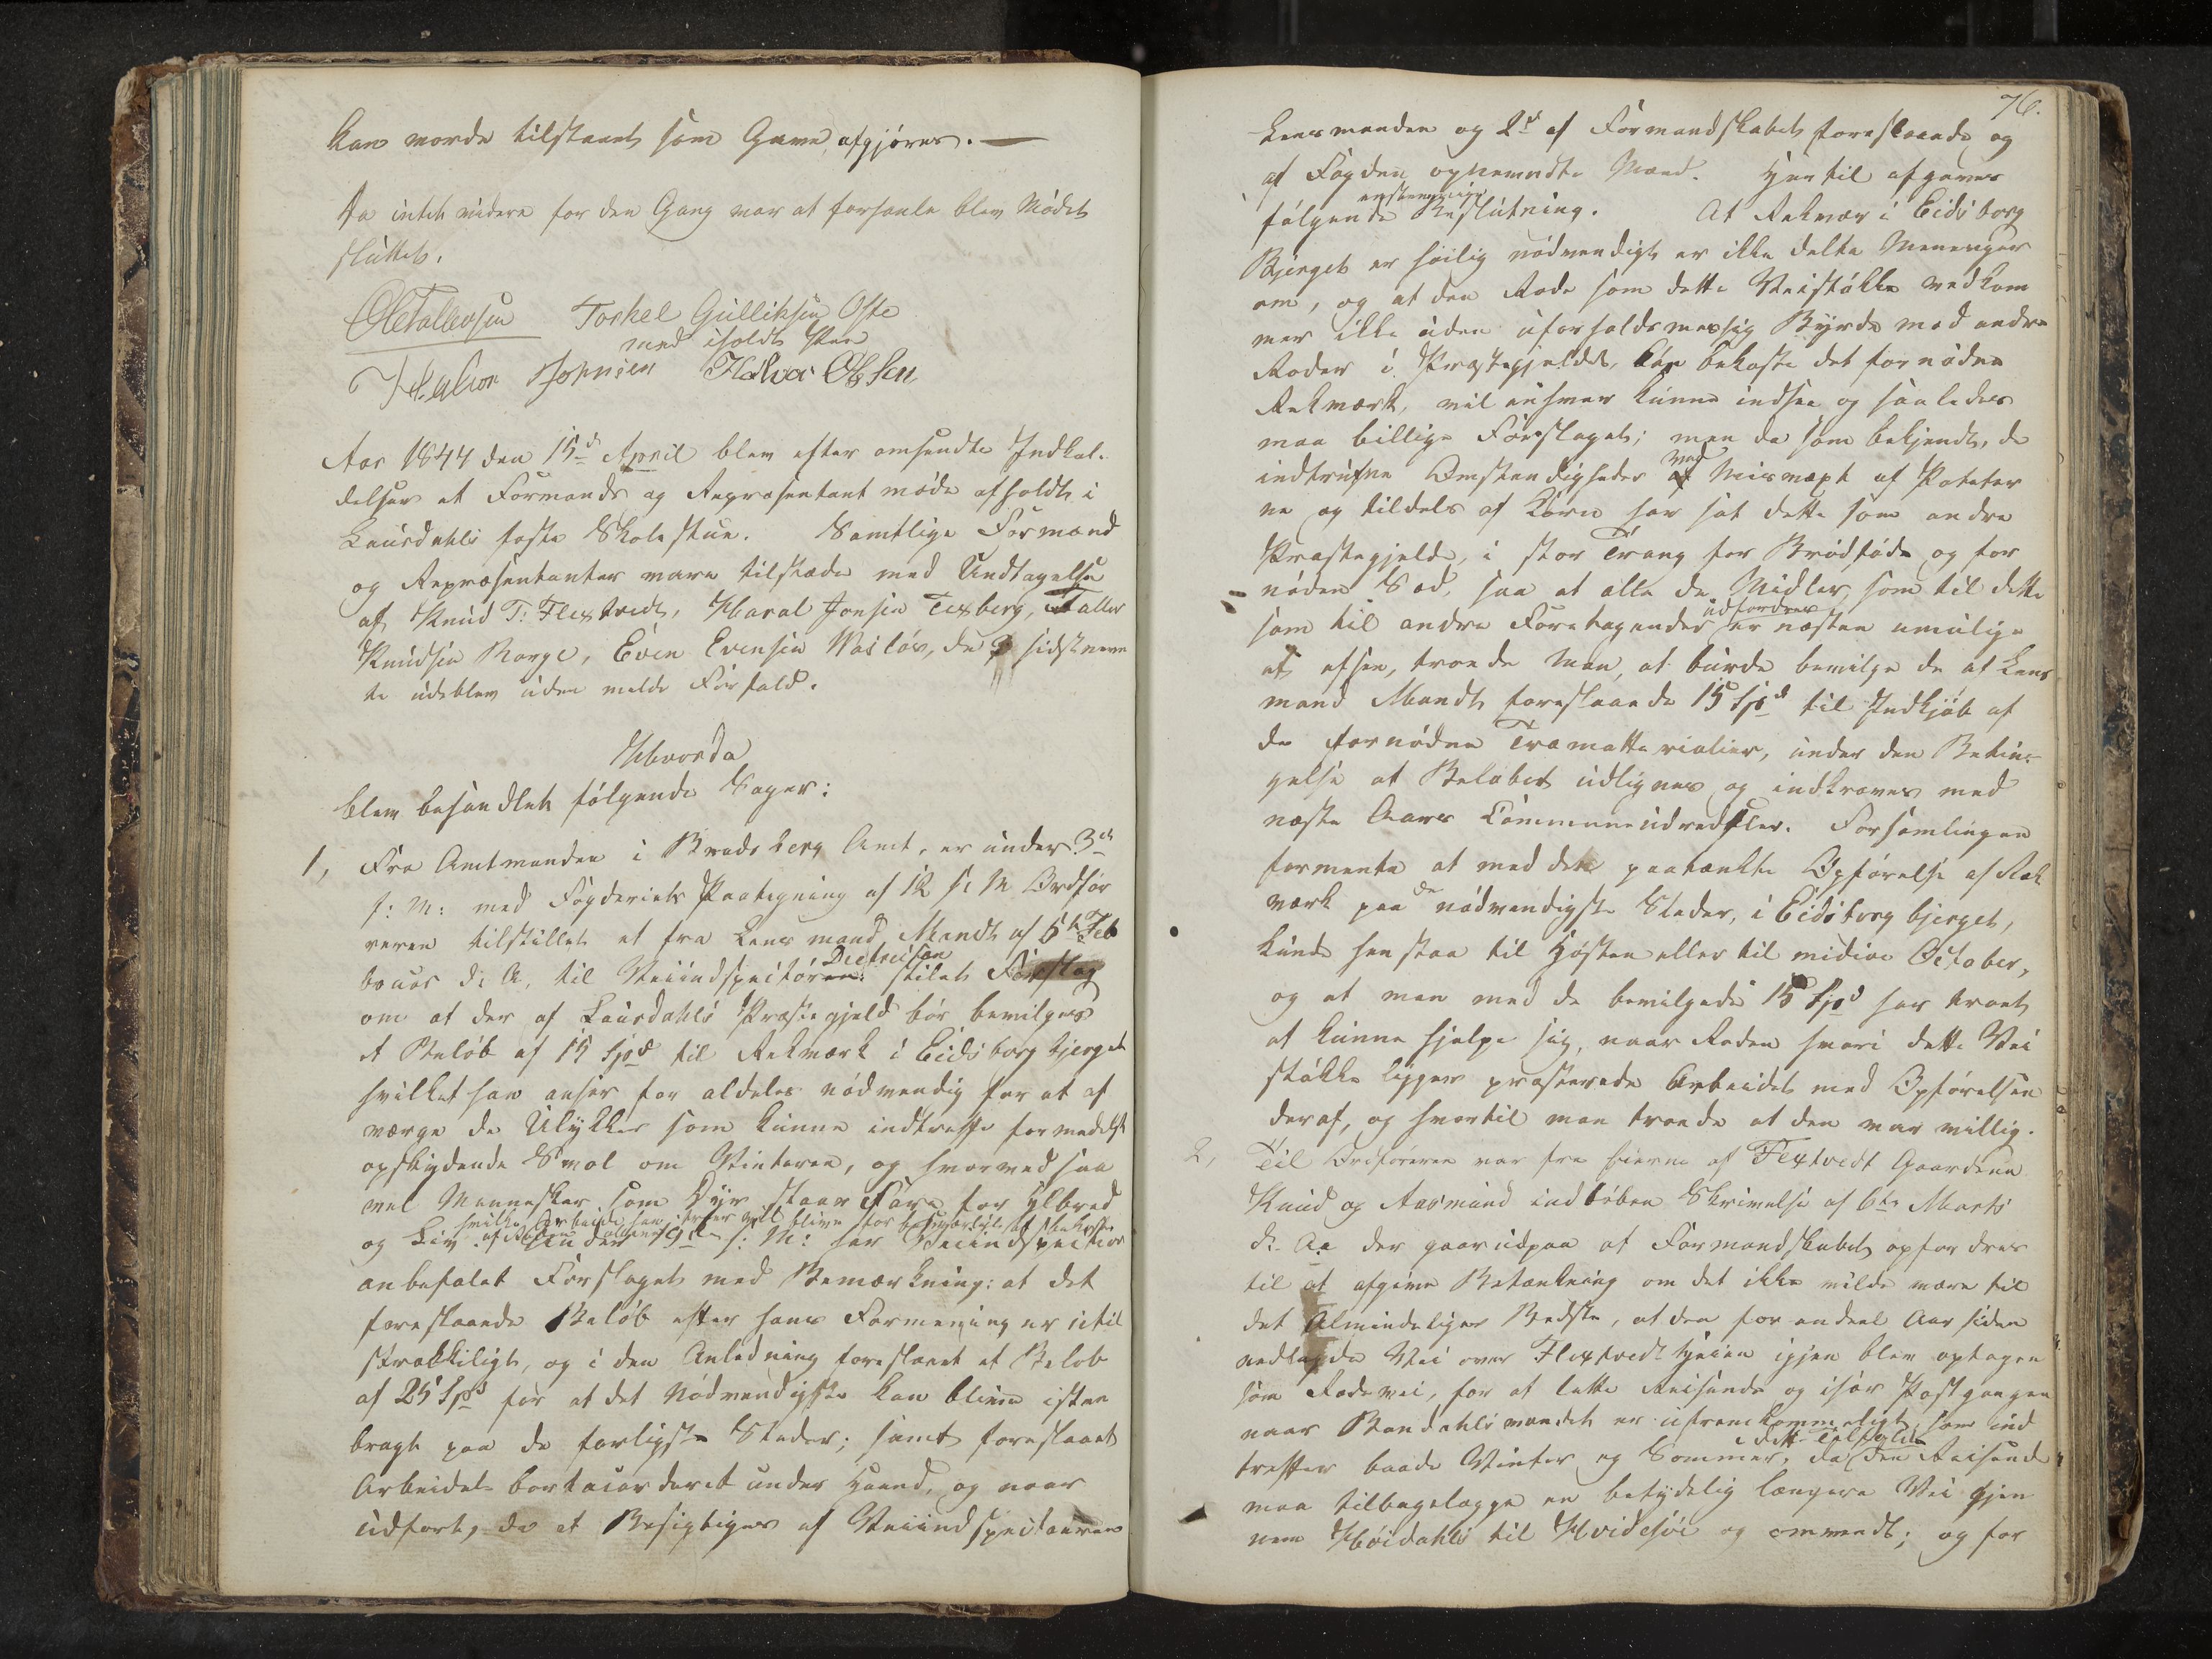 kan worde tilstaaet som Gave, afgjøres. —
Da intet videre for den Gang var at forhandle blev Mødet
sluttet.
Ole Tallevsen Torkel Gulliksen Ofte
med iholdt Pen
Halvor Johnsen Halvor Olsen
Aar 1844 den 15d April blev efter omsendte Indkal-
delser et Formands og Repræsentant møde afholdt i
Laurdahls faste Skolestue. Samtlige Formænd
og Repræsentanter vare tilstæde med Undtagelse
af Knud T: Flextvedt, Haral Jonsen Texberg, Taller
Knudsen Borge, Even Evensen Vasløs, de 3 sidstnevn
te udeblev uden meldt Forfald.
Hvorda
blev behandlet følgende Sager:
1, Fra Amtmanden i Bradsberg Amt, er under 3die
f: M: med Fogderiets Paategning af 12 s: M Ordfør
reren tilstillet et fra Lensmand Mandt af 5te Feb
Districten
bruar d: A, til Veiindspectøren stilet Forslag
om at der af Laurdahls Præstegjeld bør bevilges
et Beløb af 15 Spd til Rekværk i Eidsborg bjerget
hvilket han anser for aldeles nødvendig for at af
værge de Ulykker som kunne indtreffe formedelst
opskydende Svol om Vinteren, og hvormed saa
vel Mennesker som Dyr staar Fare for Helbred
hvilke Arbeide han anser vil blive for besværligt at bekoste
og Liv. af Roden alene. Under 19de f: M: har Veiindspecteur
anbefalet Forslaget med Bemærkning: at det
foreslaaede Beløb efter hans Formening er util
strækkeligt, og i den Anledning foreslaaet et Beløb
af 25 Spd for at det Nødvendigste kan blive istan
bragt paa de farligste Steder; samt foreslaaet
Arbeidet bortaccorderet under Haand, og naar
udført, da at Besigtiges af Veiindspecteuren
76.
Lensmanden og 2de af Formandskabet foreslaaede og
af Fogden opnevndte Mænd. Hertil afgaves
enstemmige
følgende Beslutning. At Rekvær i Eidsborg
Bjerget er høilig nødvendigt er ikke delte Meninger
om, og at den Rode som dette Veistøkke vedkom
mer ikke uden uforholdsmessig Byrde mod andre
Roder i Præstegjeldet, kan bekoste det fornødne
Rekværk, vil enhver kunne indsee og saaledes
maa billige Forslaget; men da som bekjendt, de
med
indtrufne Omstendigheder af Misvæxt af Poteter
ne og tildels af Korn har sat dette som andre
Præstegjelde, i stor Trang for Brødføde og for
nøden Sæd, saa at alle de Midler, som til dette
udfordres
som til andre Foretagender er næsten umulige
at afsee, troede Man, at burde bevilge de af Lens
mand Mandt foreslaaede 15 Spd til Indkjøb af
de fornødne Træmatterialier, under den Betin-
gelse at Beløbet udlignes og indkræves med
næste Aars Communeudredsler. Forsamlingen
formente at med den paatænkte Opførelse af Rek
de
værk paa nødvendigste Steder, i Eidsborg bjerget,
kunde henstaa til Høsten eller til midive October,
og at man med de bevilgede 15 Spd har troet
at kunne hjelpe sig, naar Roden hvori dette Vei
støkke ligger præsterede Arbeidet med Opførelsen
deraf, og hvortil man troede at den var villig.
2, Til Ordføreren var fra Eierne af Flextvedt Gaardene
Knud og Aasmund indløben Skrivelse af 6te Marts
d: A: der gaar ud paa at Formandskabet opfordres
til at afgive Betænkning om det ikke vilde være til
det Almindeliges Bedste, at den for endeel Aar siden
nedlagde Vei over Flextvedt Heien igjen blev optagen
som Rodevei, for at lette Reisende og især Postgangen
naar Bandahls vandet er ufremkommeligt, som ind
i dette Tilfelde
treffer baade Vinter og Sommer, da den Reisende
maa tilbagelægge en betydelig længere Vei gjen
nem Høidahls til Hvidesøe og omvendt; og for